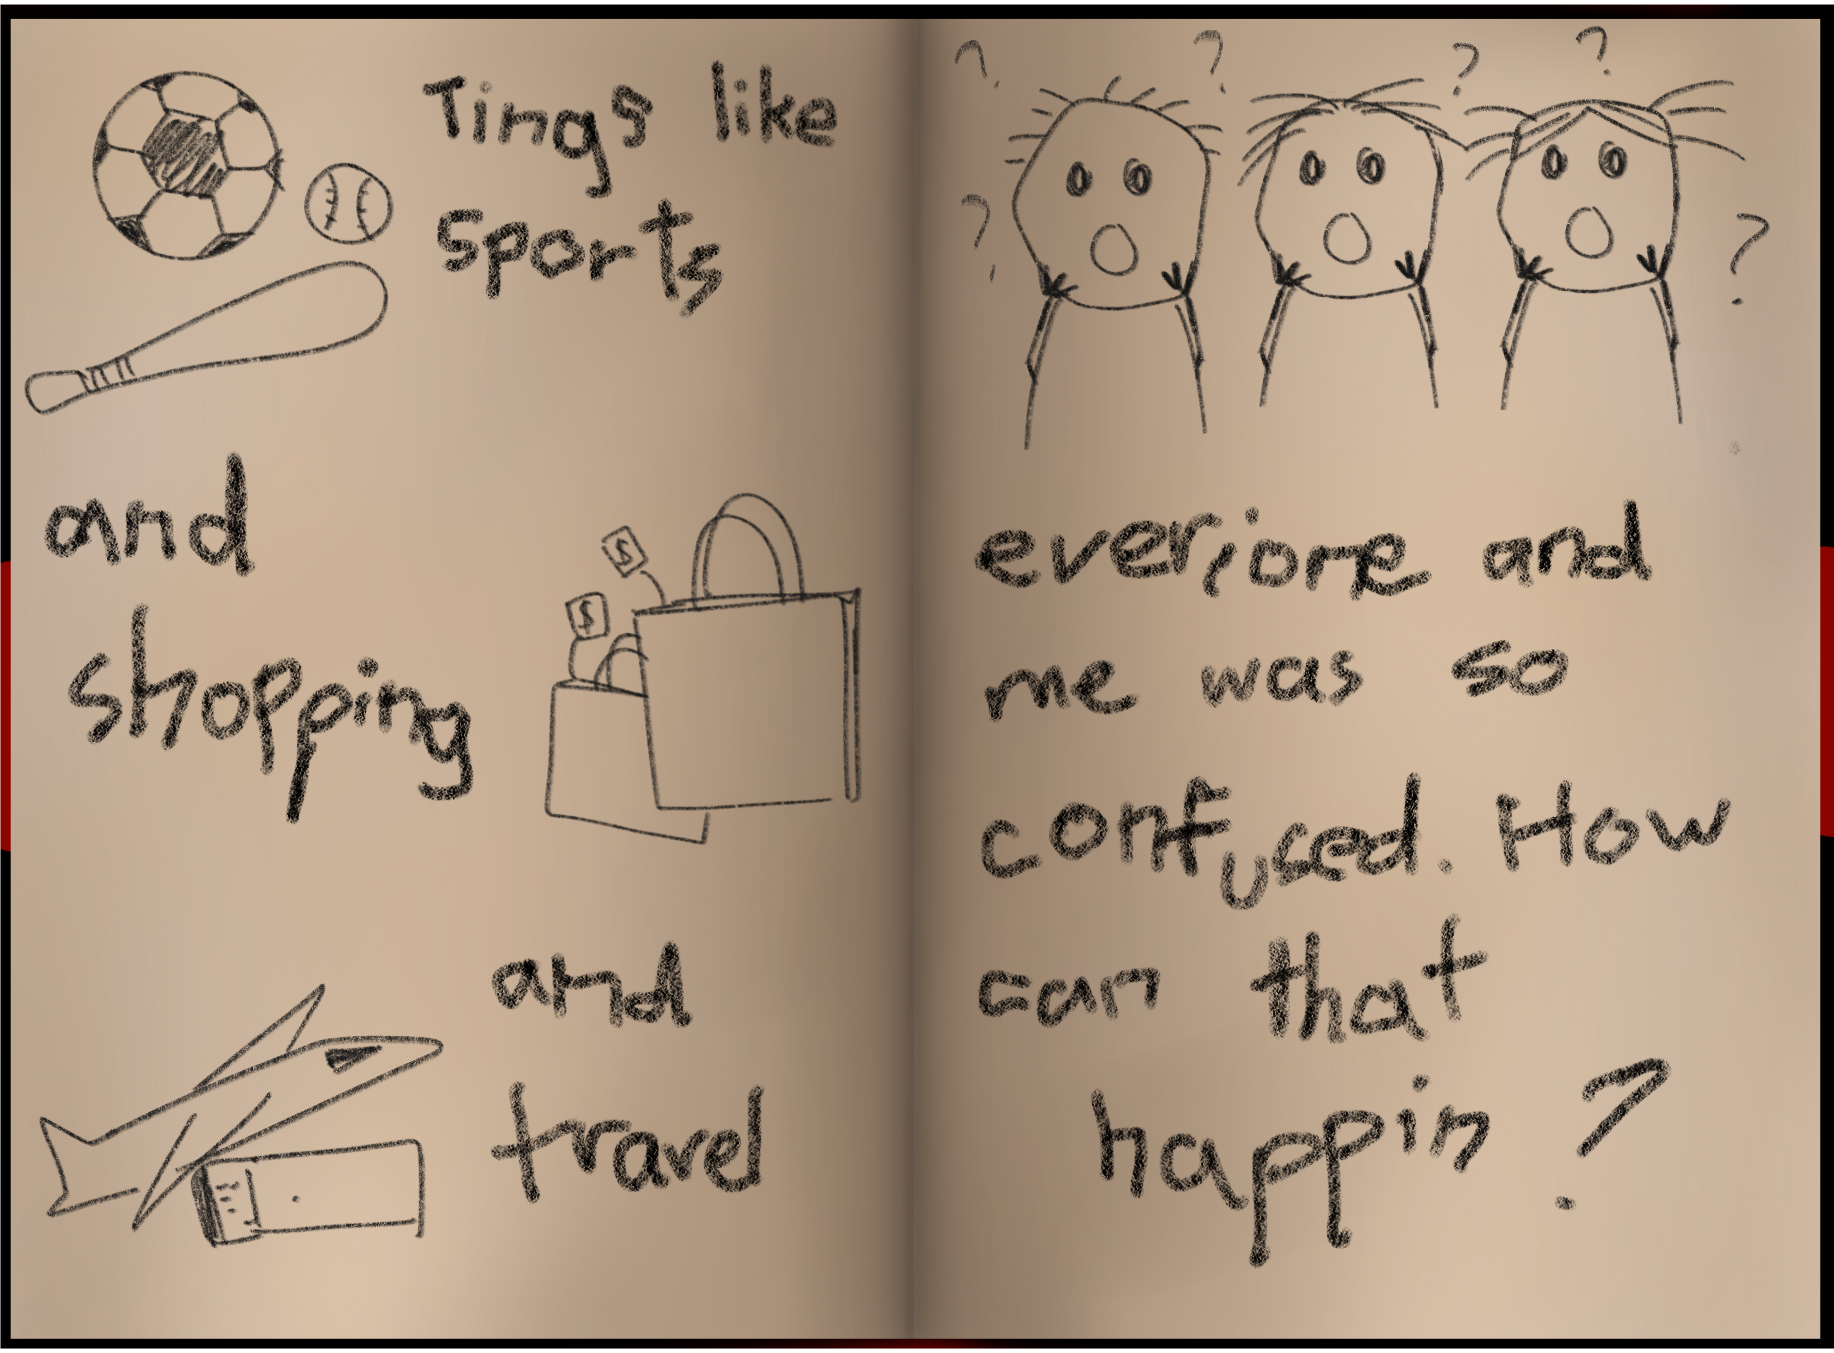 Tings like
sports
and
shopping
and
travel
? ? ? ?
? ?
everione and
me was so
confused. How
can that
happin ?
$
$